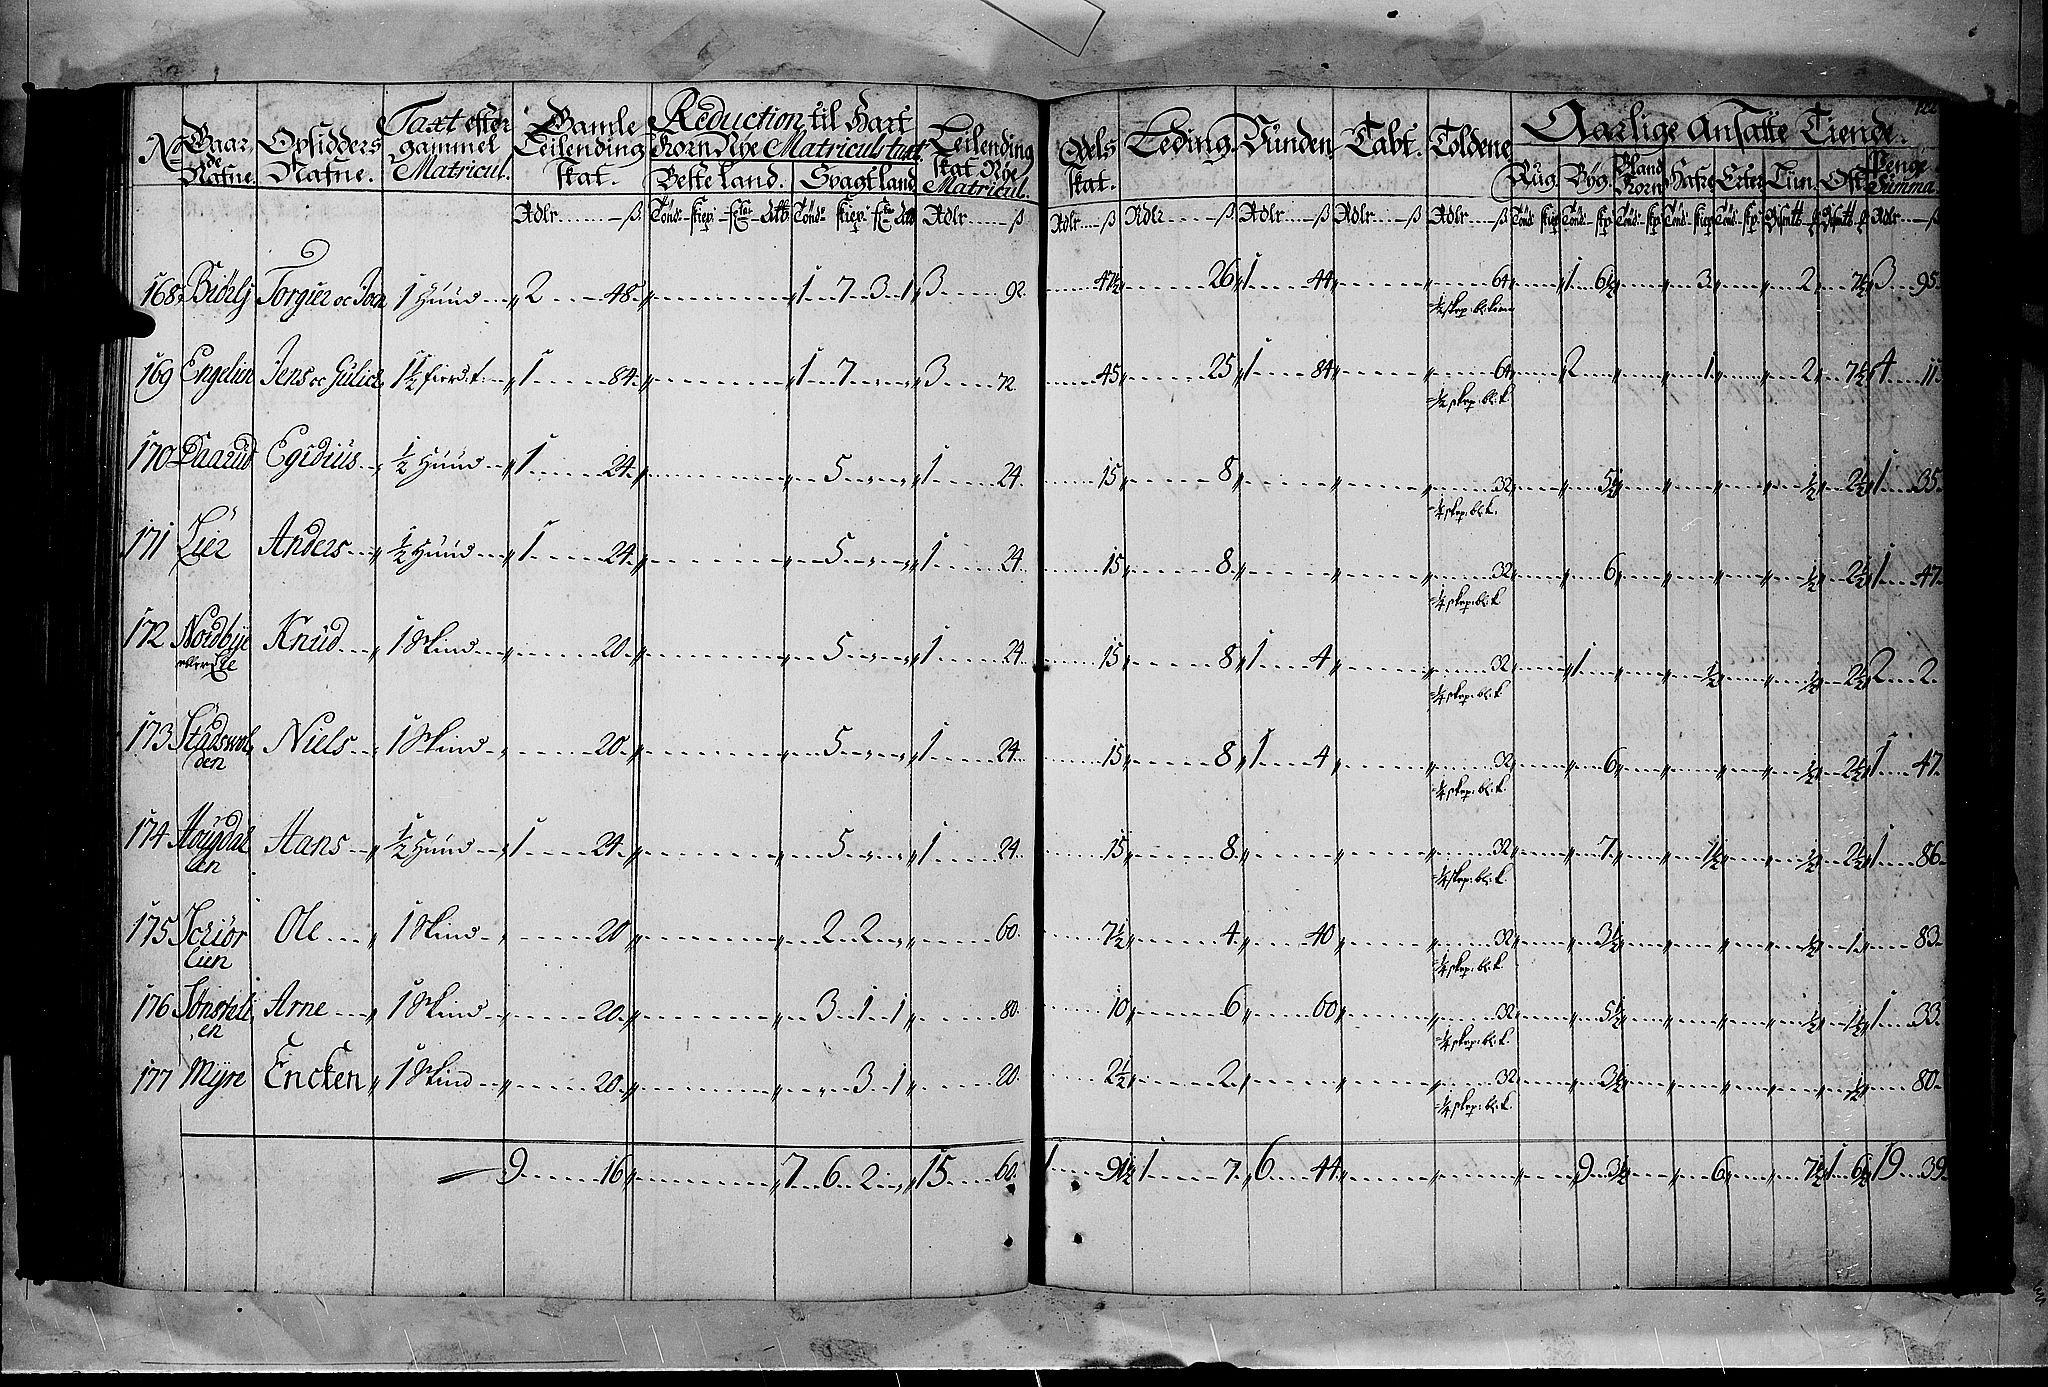 No Gaar de Nafne. Opsidders Nafne. Taxt efter gammel Matricul. Gamle Leilending skat. Reduction til Hart Korn Nÿe Matriculs taxt. Leilending skat Nÿe Matricul. Odels skat. Leding. Vunden Tabt. Toldene Aarlige Ansatte Tiende.
Beste land. Svagt land Rug. Bÿg. Bland Korn Hafre Erter Liin. Ost. Penge Summa
Rdlr ß Tönd skiep Rdlr ß Rdlr ß Rdlr ß Rdlr ß Rdlr ß Rdlr ß Rdlr ß
168 Torgier oc 1 Huud 2 48 1 7 3 1 3 92 47½ 26 1 44 64 1 6½ 3 2 7½ 3 95
¼ skep: bl:korn
169 Engelun Jens oc Gulich 1½ fierd: 1 84 1 7 3 72 45 25 1 84 64 2 1 2 7½ 4 11
½ skep: bl: k
170 Daarud Egidius ½ Huud 1 24 5 1 24 15 8 32 5½ ½ 2½ 1 35
¼ skep: bl: k.
171 Lier Anders ½ Huud 1 24 5 1 24 15 8 32 6 ½ 2½ 1 47
¼ skep: bl: k
172 Nordbÿe Knud 1 Skind 20 5 1 24 15 8 1 4 32 1 ½ ½ 2½ 2 2
eller Lie ¼ skep: bl: k
173 Stadsvol Niels 1 Skind 20 5 1 24 15 8 1 4 32 6 ½ 2½ 1 47
den ¼ skep: bl: k.
174 Hougdal Hans ½ Huud 1 24 5 1 24 15 8 32 7 1½ ½ 2½ 1 86
en ¼ skep: bl: k.
175 Schiör Ole 1 Skind 20 2 2 60 7½ 4 40 32 3½ ½ 1 83
lien ¼ skep: bl: k.
176 Arne 1 Skind 20 3 1 1 80 10 6 60 32 5½ ½ 1½ 1 33
en ¼ skep: bl: k.
177 Mÿre Encken 1 Skind 20 3 1 20 2½ 2 32 3½ ½ 80
¼ skep: bl: k.
9 16 7 6 2 15 60 1 91½ 1 7 6 44 9 3½ 6 7½ 1 6½ 19 39